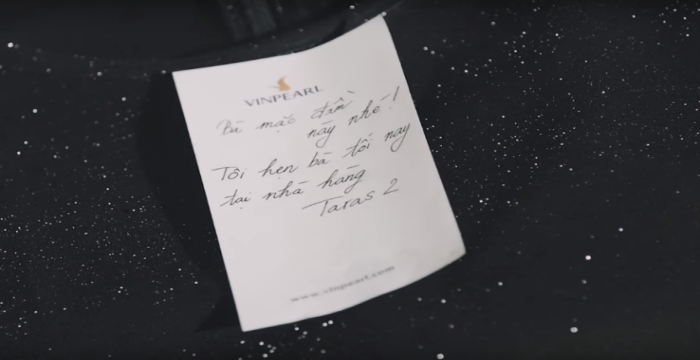 VINPEARL
Bà mặc đầm
này nhé!
Tôi hẹn bà tối nay
tại nhà hàng
Taras 2
www.vinpearl.com